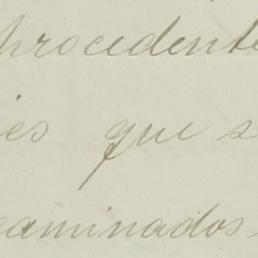 procedente
es que s
caminados